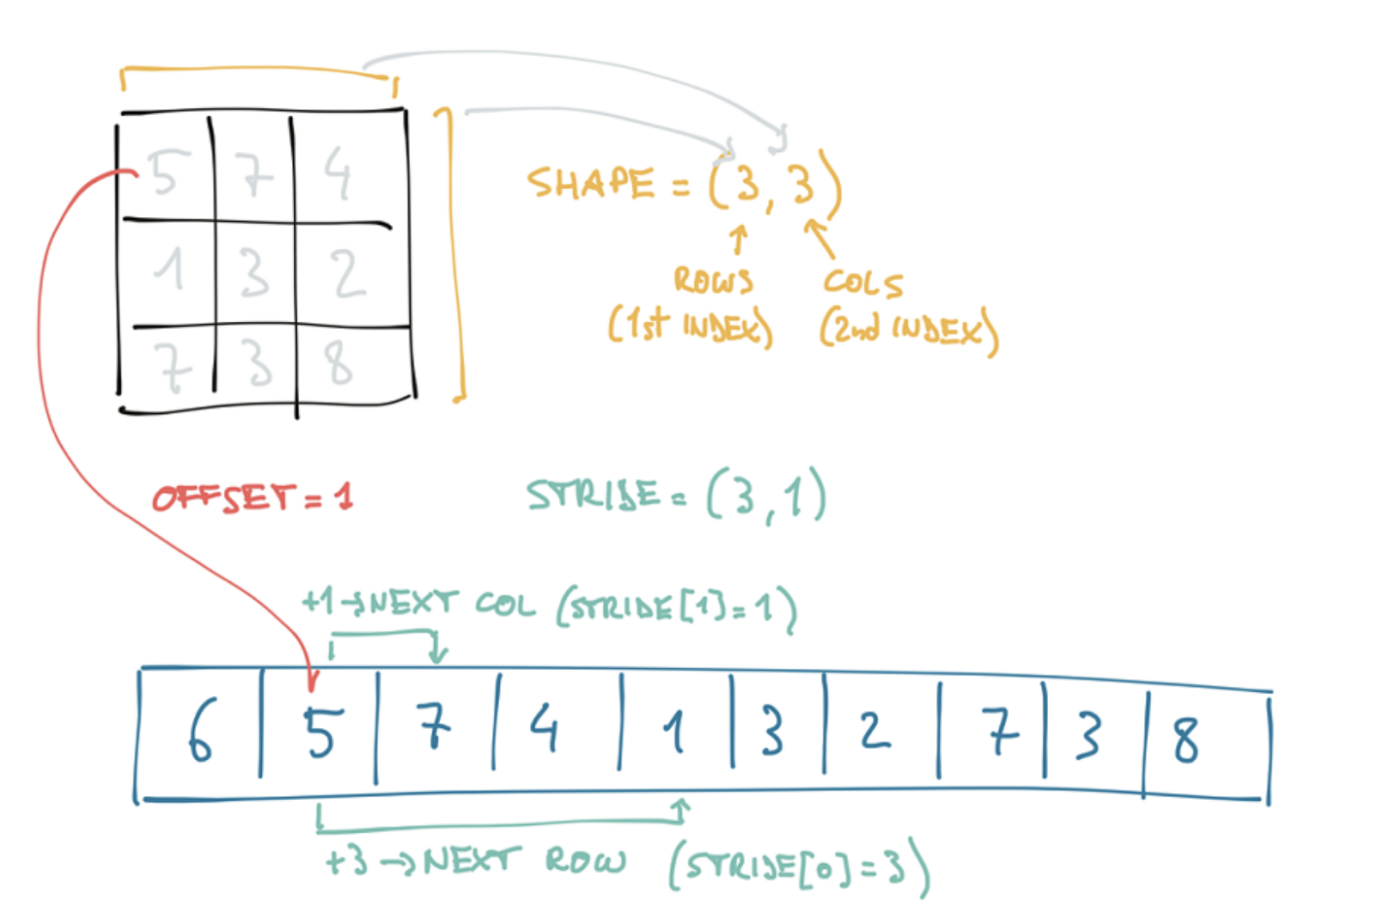 5 7 4
1 3 2
7 3 8
SHAPE = (3, 3)
ROWS
(1st INDEX)
COLS
(2nd INDEX)
OFFSET = 1
STRIDE = (3, 1)
+1 → NEXT COL (STRIDE[1] = 1)
6 5 7 4 1 3 2 7 3 8
+3 → NEXT ROW (STRIDE[0] = 3)